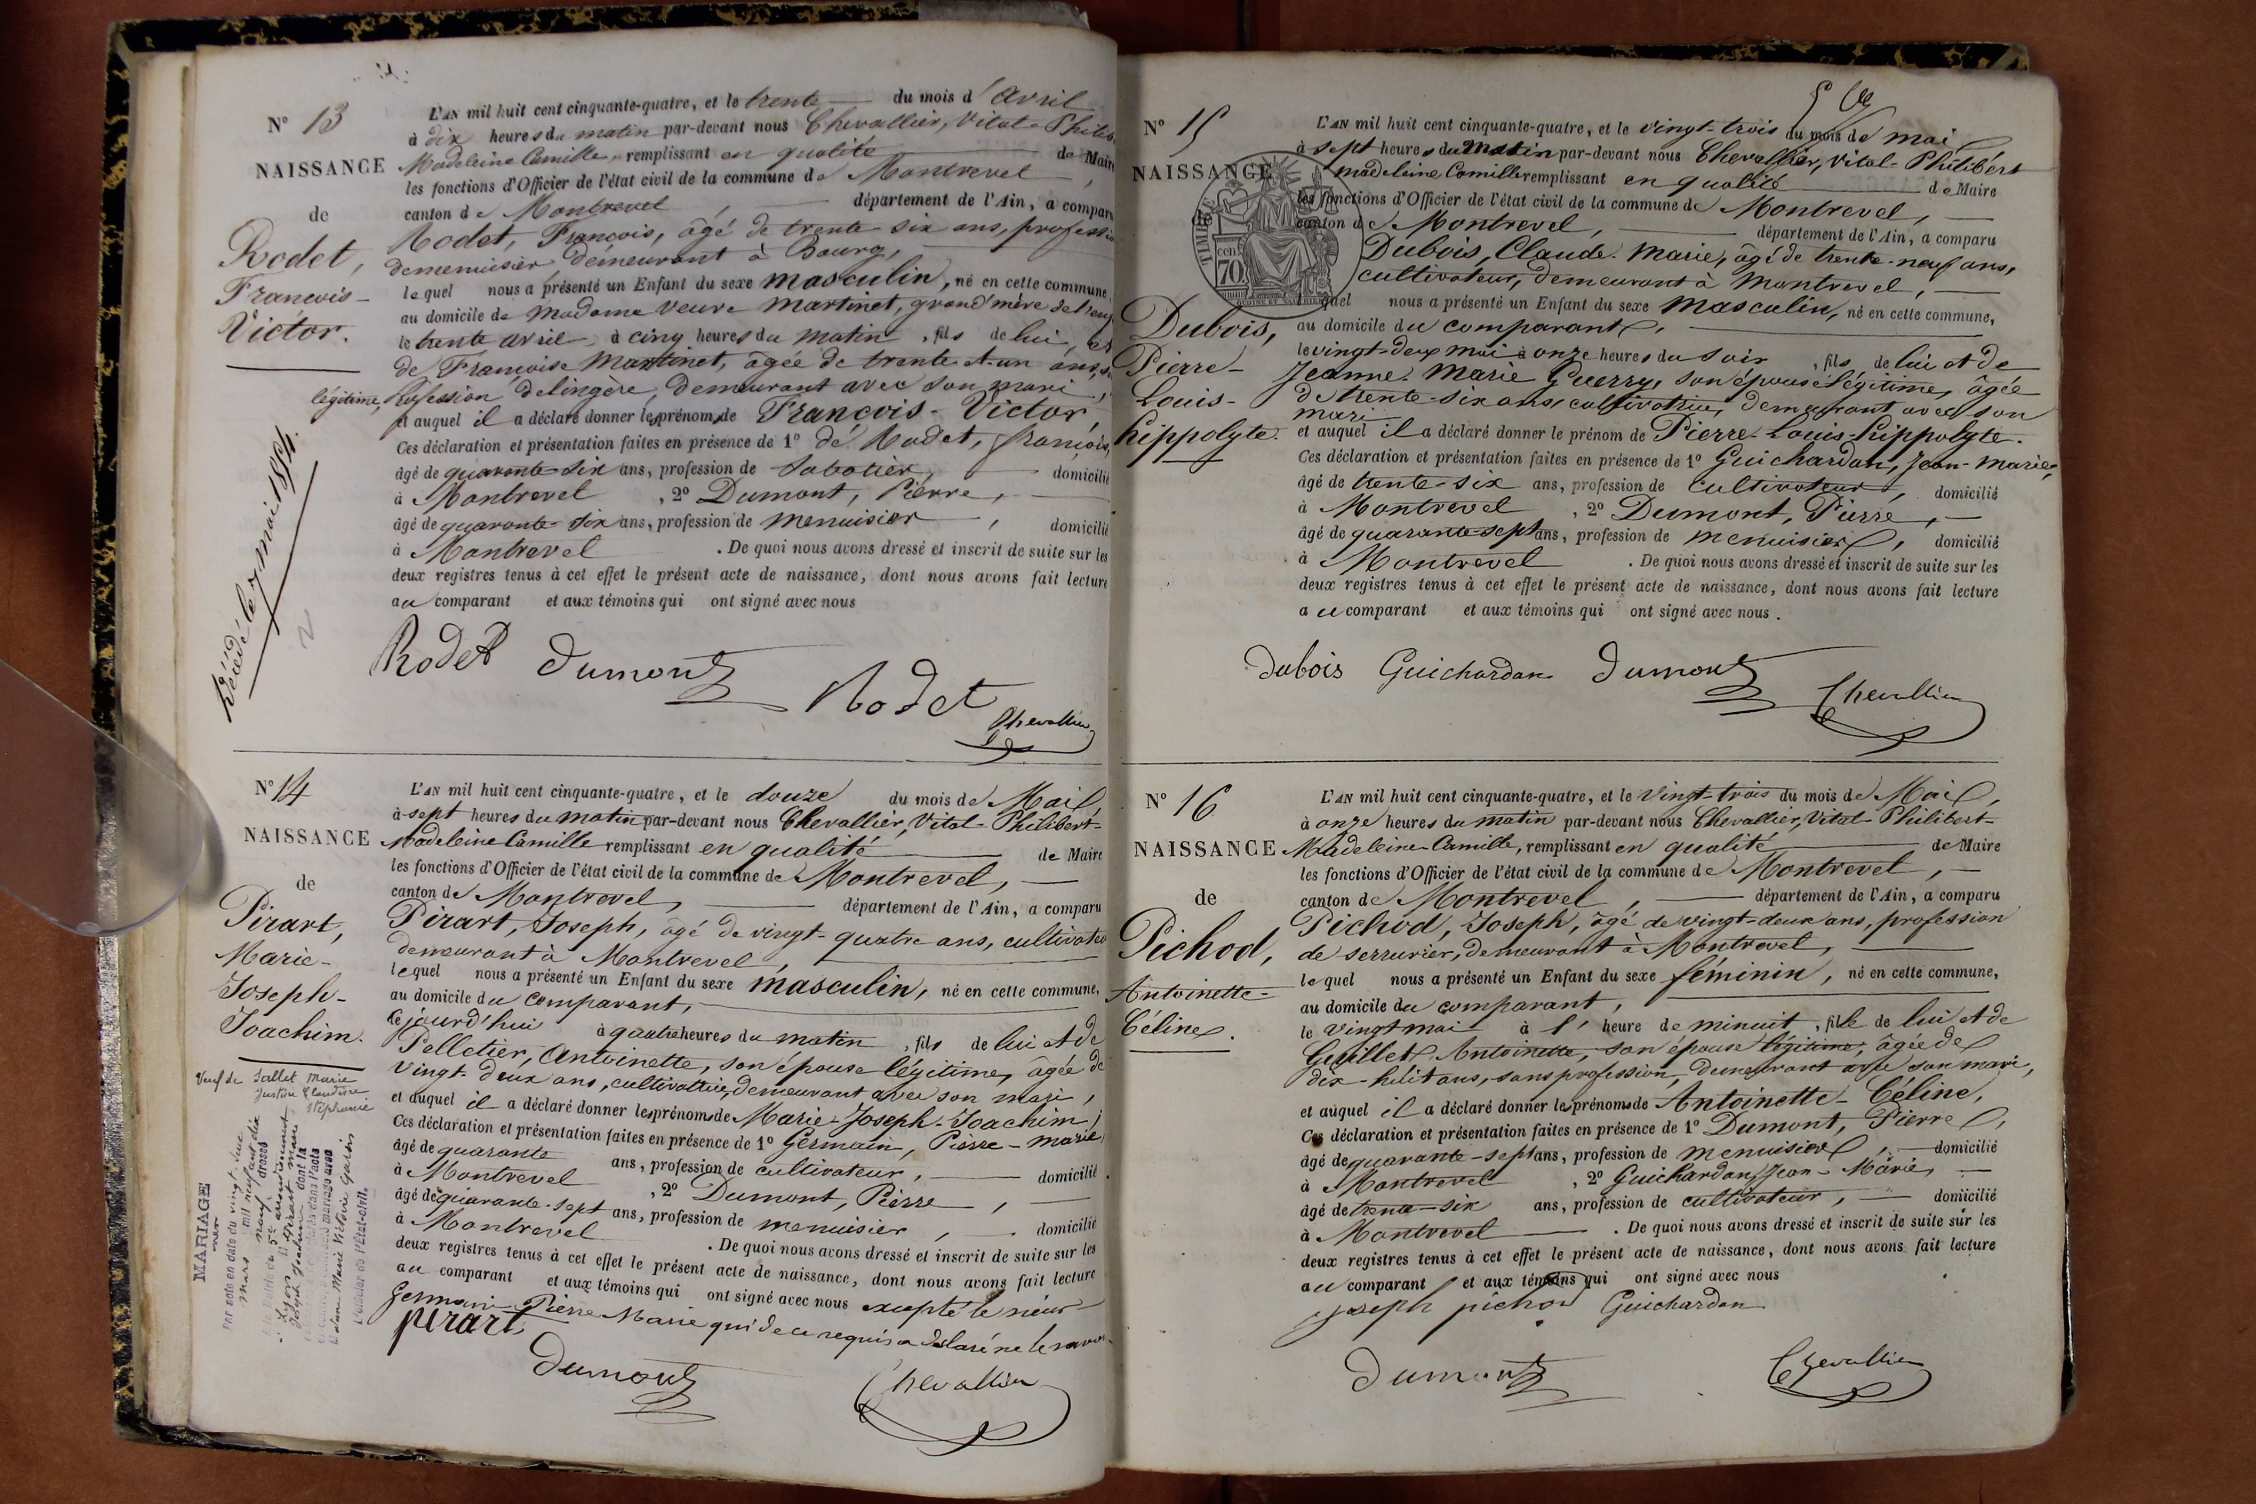 N° 13
NAISSANCE
de
Rodet,
François-
Victor.
L'AN mil huit cent cinquante-quatre, et le trente du mois d'avril
à dix heures du matin par-devant nous Chevallier, Vital-Philib
Madeleine Camille, remplissant en qualité de Maire
les fonctions d'Officier de l'état civil de la commune de Montrevel,
canton de Montrevel, département de l'Ain, a comparu
Rodet, François, âgé de trente six ans, professi
demenuisier, demeurant à Bourg,
lequel nous a présenté un Enfant du sexe masculin, né en cette commune,
au domicile de madame veuve Martinet, grand'mère
le trente avril à cinq heures du matin, fils de lui, et
de Françoise Martinet, âgée de trente et un ans,
légitime, profession delingère, demeurant avec son mari,
et auquel il a déclaré donner les prénoms de François-Victor,
Ces déclaration et présentation faites en présence de 1° de Rodet, françois,
âgé de quarante-six ans, profession de Sabotier, domicilié
à Montrevel, 2° Dumont, Pierre,
âgé de quarante-six ans, profession de menuisier, domicilié
à Montrevel. De quoi nous avons dressé et inscrit de suite sur les
deux registres tenus à cet effet le présent acte de naissance, dont nous avons fait lecture
au comparant et aux témoins qui ont signé avec nous
Décédé le 7 mai 1854.
Rodet Dumont
Rodet Chevallier
N° 14
NAISSANCE
de
Pirart,
Marie-
Joseph-
Joachim.
L'AN mil huit cent cinquante-quatre, et le douze du mois de Mai,
à sept heures du matin par-devant nous Chevallier, Vital-Philibert-
Madeleine Camille remplissant en qualité de Maire
les fonctions d'Officier de l'état civil de la commune de Montrevel,
canton de Montrevel, département de l'Ain, a comparu
Pirart, Joseph, âgé de vingt-quatre ans, cultivateu
demeurant à Montrevel,
lequel nous a présenté un Enfant du sexe masculin, né en cette commune,
au domicile du comparant,
cejourd'hui à quatre heures du matin, fils de lui et de
Pelletier, Antoinette, son épouse légitime, âgée de
vingt-deux ans, cultivatrice, demeurant avec son mari,
et auquel il a déclaré donner les prénoms de Marie-Joseph-Joachim,
Ces déclaration et présentation faites en présence de 1° Germain, Pierre-Marie
âgé de quarante ans, profession de cultivateur, domicilié
à Montrevel, 2° Dumont, Pierre,
âgé de quarante-sept ans, profession de menuisier, domicilié
à Montrevel. De quoi nous avons dressé et inscrit de suite sur les
deux registres tenus à cet effet le présent acte de naissance, dont nous avons fait lecture
au comparant et aux témoins qui ont signé avec nous excepté le sieur
Germain Pierre Marie qui de ce requis a déclaré ne le savoir
Pirart
Dumont Chevallier
Veuf de Sallet Marie
Justine Claudine
Stéphanie
MARIAGE
Par acte en date du vingt-
mars mil neuf cent dix
neuf dressé
5e arrondissement
Lyon Pirart Marie
Joseph Joachim dont la
mariage avec
Marie Victoire
l'Officier de l'Etat-civil
N° 15
NAISSANCE
de
Dubois,
Pierre-
Louis-
hippolyte.
TIMBRE
70 cen
L'AN mil huit cent cinquante-quatre, et le vingt-trois du mois de mai,
à sept heures du matin par-devant nous Chevallier, Vital-Philibert
madeleine Camille remplissant en qualité de Maire
les fonctions d'Officier de l'état civil de la commune de Montrevel,
canton de Montrevel, département de l'Ain, a comparu
Dubois, Claude-Marie, âgé de trente-neuf ans,
cultivateur, demeurant à Montrevel,
lequel nous a présenté un Enfant du sexe masculin, né en cette commune,
au domicile du comparant,
le vingt-deux mai à onze heures du soir, fils de lui et de
Jeanne-Marie Guerry, son épouse légitime, âgée
de trente-six ans, cultivatrice, demeurant avec son
mari
et auquel il a déclaré donner le prénom de Pierre-Louis-hippolyte.
Ces déclaration et présentation faites en présence de 1° Guichardan, Jean-Marie,
âgé de trente-six ans, profession de cultivateur, domicilié
à Montrevel, 2° Dumont, Pierre,
âgé de quarante-sept ans, profession de menuisier, domicilié
à Montrevel. De quoi nous avons dressé et inscrit de suite sur les
deux registres tenus à cet effet le présent acte de naissance, dont nous avons fait lecture
au comparant et aux témoins qui ont signé avec nous.
Dubois Guichardan Dumont
Chevallier
N° 16
NAISSANCE
de
Pichod,
Antoinette-
Céline.
L'AN mil huit cent cinquante-quatre, et le vingt-trois du mois de Mai,
à onze heures du matin par-devant nous Chevallier, Vital-Philibert-
Madeleine-Camille, remplissant en qualité de Maire
les fonctions d'Officier de l'état civil de la commune de Montrevel,
canton de Montrevel, département de l'Ain, a comparu
Pichod, Joseph, âgé de vingt-deux ans, profession
de serrurier, demeurant à Montrevel,
lequel nous a présenté un Enfant du sexe féminin, né en cette commune,
au domicile du comparant,
le vingt mai à l'heure de minuit, fille de lui et de
Guillet, Antoinette, son épouse légitime, âgée de
dix-huit ans, sans profession, demeurant avec son mari,
et auquel il a déclaré donner les prénoms de Antoinette-Céline,
Ces déclaration et présentation faites en présence de 1° Dumont, Pierre,
âgé de quarante-sept ans, profession de menuisier, domicilié
à Montrevel, 2° Guichardan, Jean-Marie,
âgé de trente-six ans, profession de cultivateur, domicilié
à Montrevel. De quoi nous avons dressé et inscrit de suite sur les
deux registres tenus à cet effet le présent acte de naissance, dont nous avons fait lecture
au comparant et aux témoins qui ont signé avec nous
joseph pichod Guichardan
Dumont Chevallier